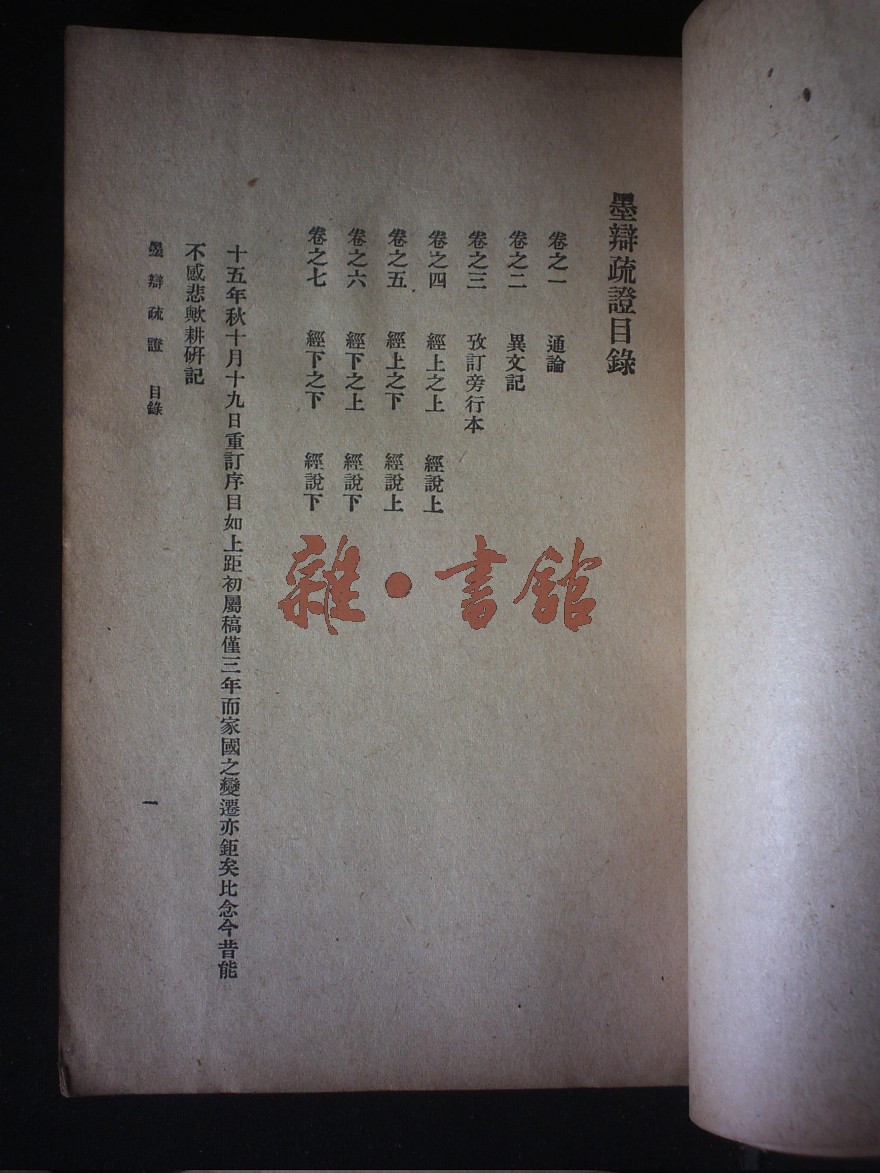 墨辯疏證目錄
卷之一 通論
卷之二 異文記
卷之三 攷訂旁行本
卷之四 經上之上 經說上
卷之五 經上之下 經說上
卷之六 經下之上 經說下
卷之七 經下之下 經說下
十五年秋十月十九日重訂序目如上距初屬稿僅三年而家國之變遷亦鉅矣比念今昔能
不感悲歟耕研記
墨辯疏證 目錄
一
雜·書館